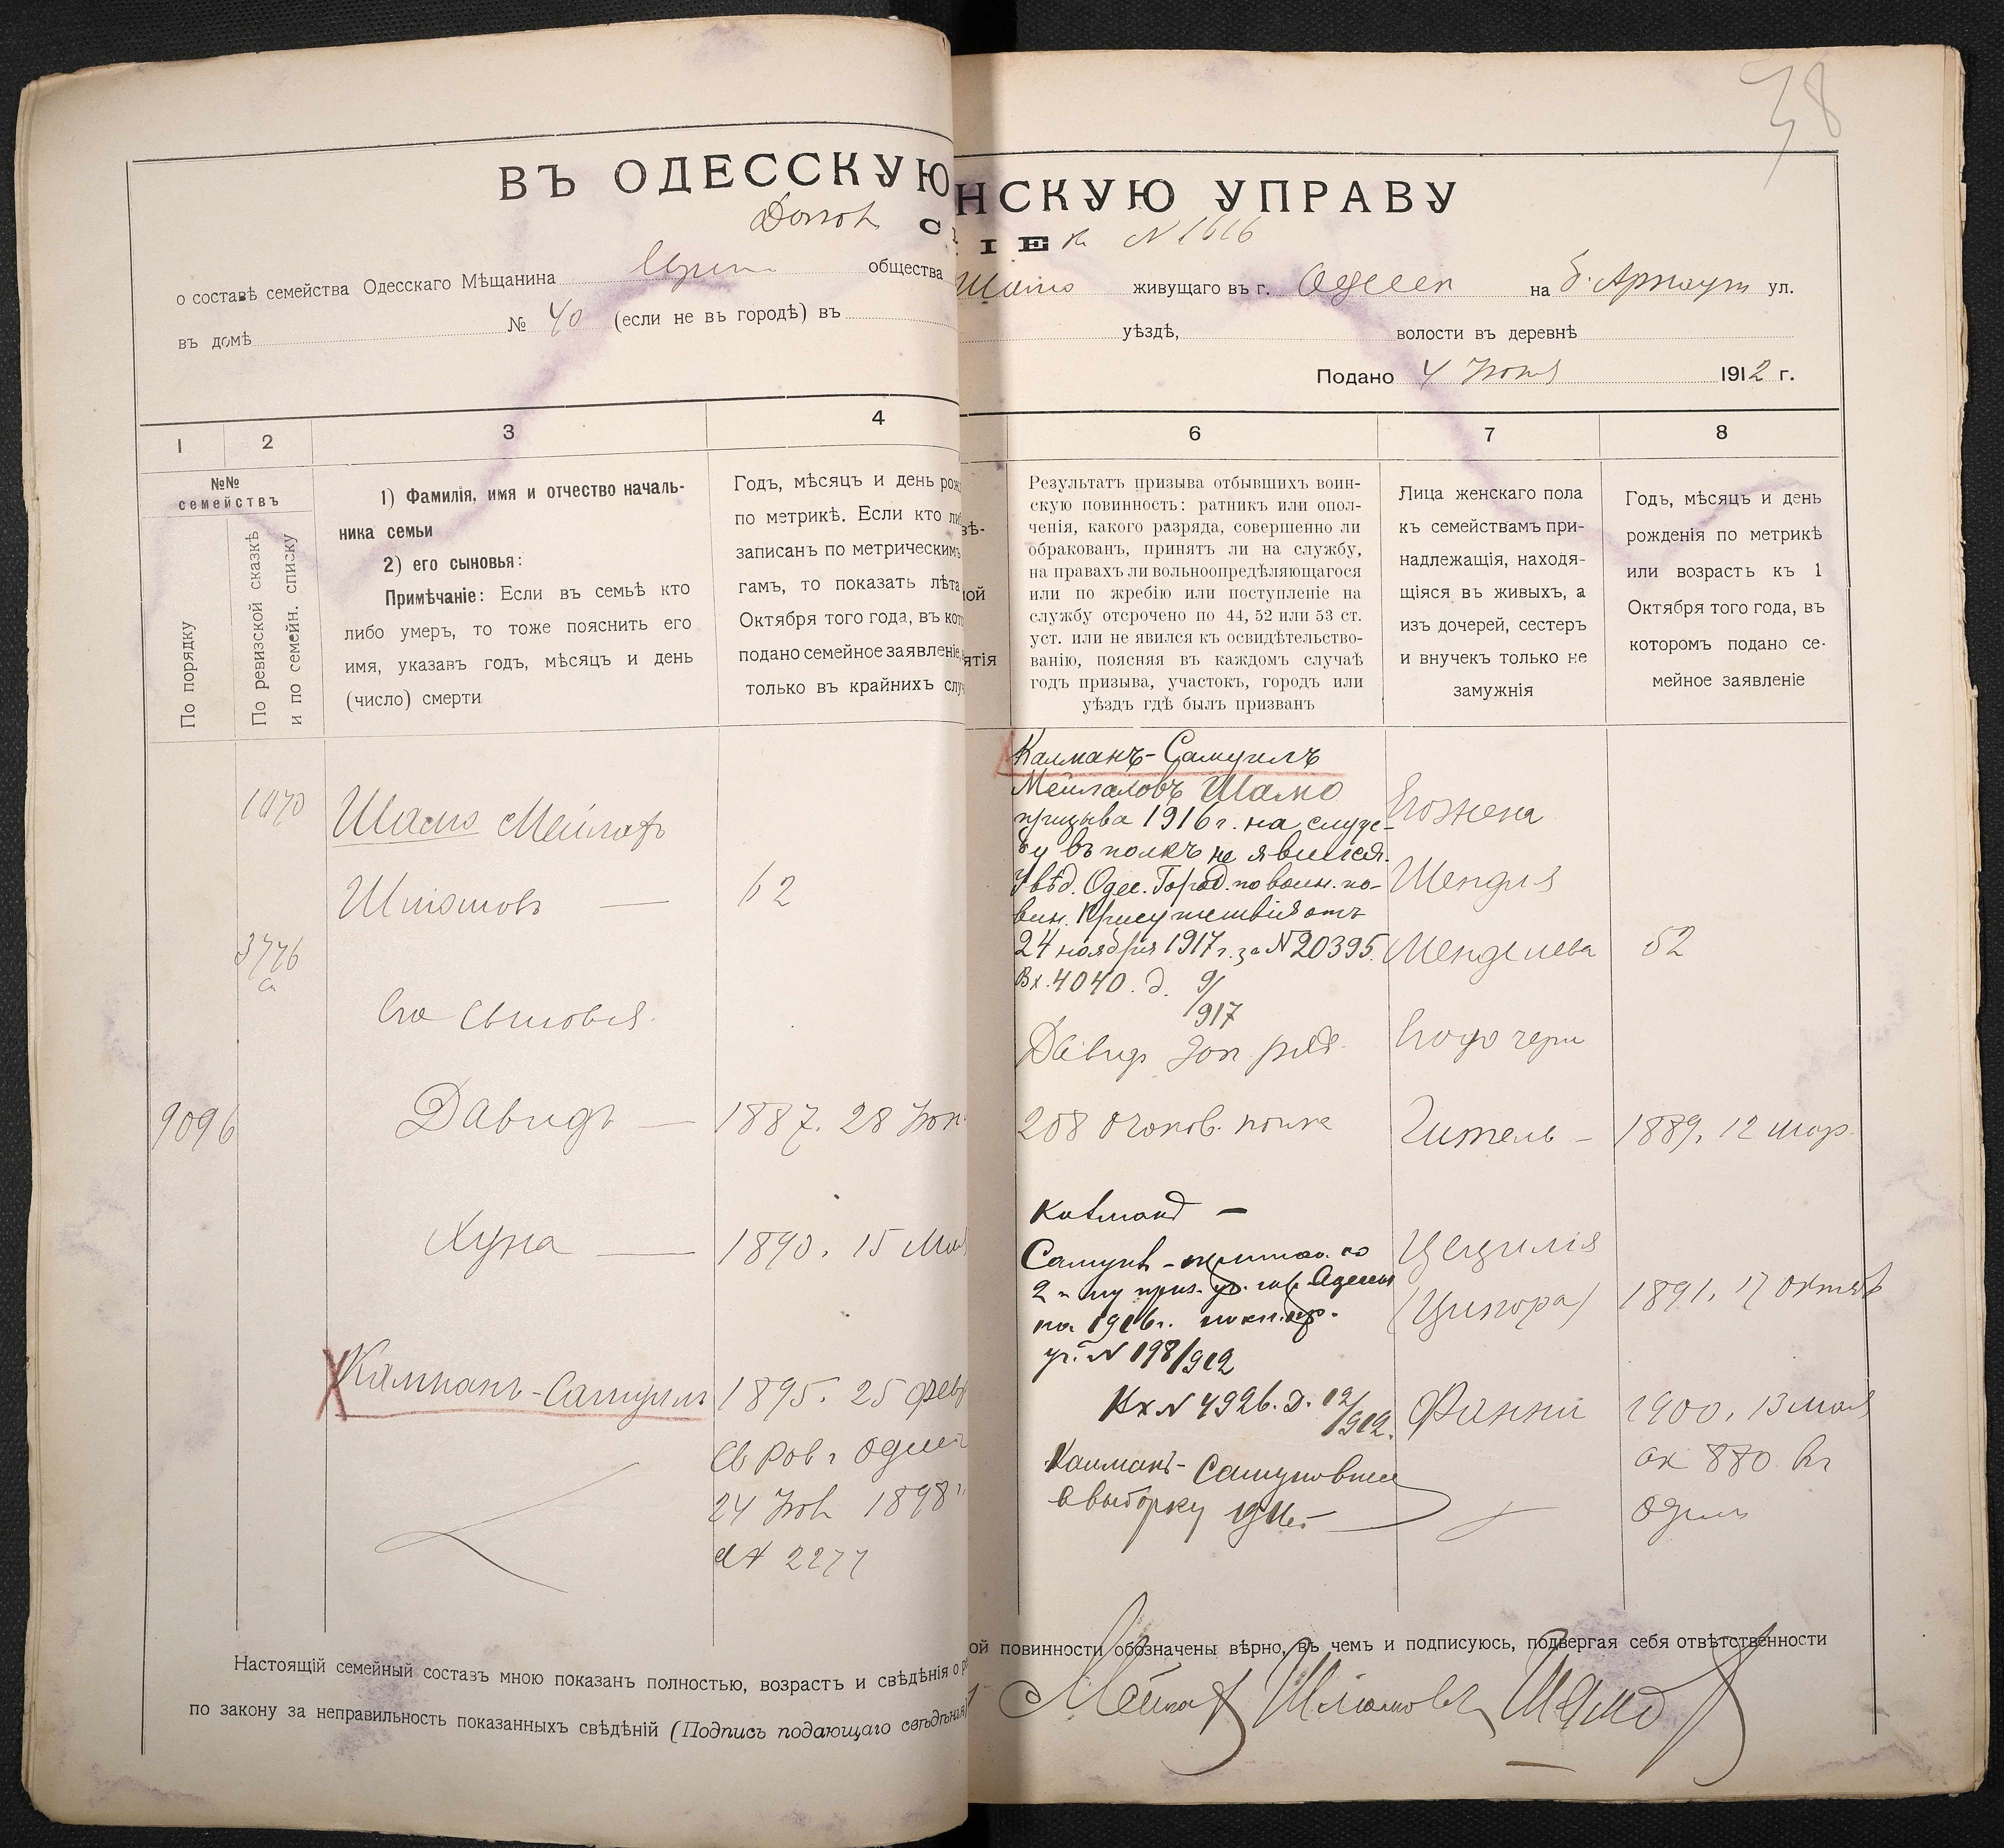 38
ВЪ ОДЕССКУЮ
НСКУЮ УПРАВУ
№ 1616
о составѣ семейства Одесскаго Мѣщанина общества
Шамо живущаго въ г. Одессе на Б. Арнаут ул.
въ домѣ № 40 (если не въ городѣ) въ
уѣздѣ, волости въ деревнѣ
Подано 4 Июня 1912 г.
1 2 3 4
6 7 8
№№
семействъ
По порядку
По ревизской сказкѣ
и по семейн. списку
1) Фамилія, имя и отчество началь-
ника семьи
2) его сыновья:
Примѣчаніе: Если въ семьѣ кто
либо умеръ, то тоже пояснить его
имя, указавъ годъ, мѣсяцъ и день
(число) смерти
Годъ, мѣсяцъ и день рож
по метрикѣ. Если кто ли
записанъ по метрическимъ
гамъ, то показать лѣта
Октября того года, въ кот
подано семейное заявленіе,
только въ крайнихъ слу
вѣ-
ной
ятія
Результатъ призыва отбывшихъ воин-
скую повинность: ратникъ или опол-
ченія, какого разряда, совершенно ли
обракованъ, принятъ ли на службу,
на правахъ ли вольноопредѣляющагося
или по жребію или поступленіе на
службу отсрочено по 44, 52 или 53 ст.
уст. или не явился къ освидѣтельство-
ванію, поясняя въ каждомъ случаѣ
годъ призыва, участокъ, городъ или
уѣздъ гдѣ былъ призванъ
Лица женскаго пола
къ семействамъ при-
надлежащія, находя-
щіяся въ живыхъ, а
изъ дочерей, сестеръ
и внучекъ только не
замужнія
Годъ, мѣсяцъ и день
рожденія по метрикѣ
или возрастъ къ 1
Октября того года, въ
которомъ подано се-
мейное заявленіе
1070
Шамо Мейлахъ
Шліомовъ — 62
3776
а
Его сыновья
9096
Давидъ — 1887. 28 Июн
Хуна — 1890. 15 Мая
Калманъ-Самуилъ 1895. 25 февр
24 1898
№ 2277
Калманъ-Самуилъ
Мейлаховъ Шамо
призыва 1916 г. на служ-
бу въ полкъ не явился.
Увѣд. Одес. Город. по воин. по-
вин. Присутствія отъ
24 ноября 1917 г. за № 20395.
Вх. 4040. д. 9/917
Давид Зап ряд.
208 Очаков. полка
Калман —
Самуил - приписан ко
2-му приз. уч. гор. Одессы
на 1916 г.
№ 198/912
Вх № 4926. Д. 12/912.
Калман-
в выборку
Его жена
Шендля
Менделева 52
Его дочери
Гитель — 1889, 12 мар.
Цецилія
(Ципора) 1891, 17 октяб
Фанни 1900, 13 мая
ак 880 въ
Одесс
Настоящій семейный составъ мною показанъ полностью, возрастъ и свѣдѣнія о
ой повинности обозначены вѣрно, въ чемъ и подписуюсь, подвергая себя отвѣтственности
по закону за неправильность показанныхъ свѣдѣній (Подпись подающаго свѣдѣнія)
Мейлах Шліомовъ Шамо